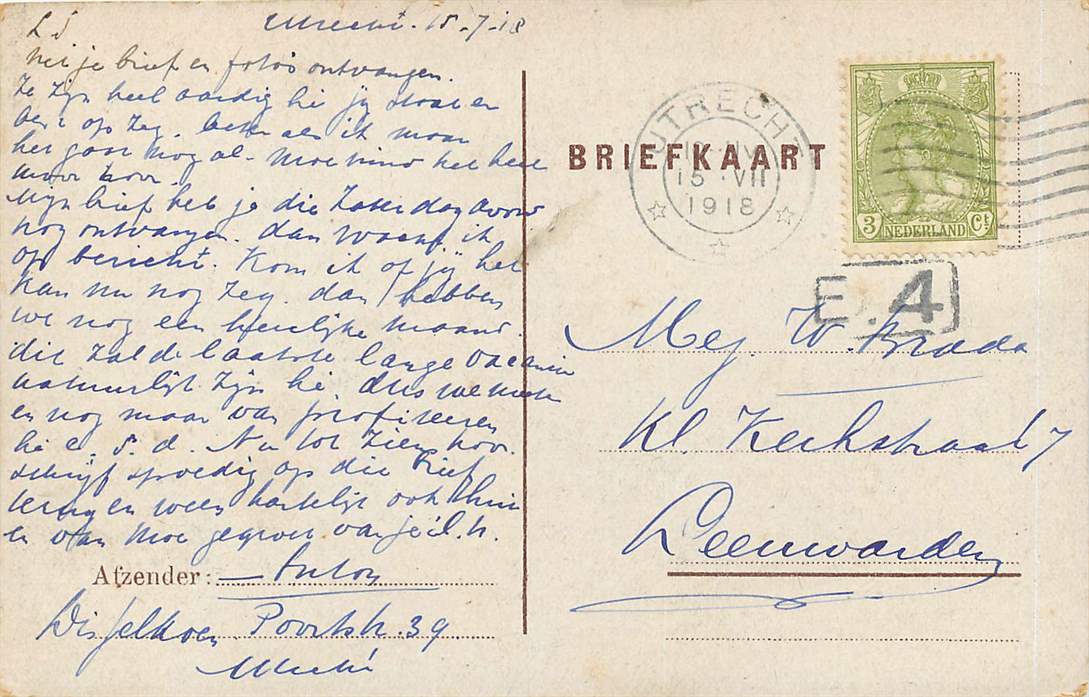 Utrecht. 15-7-18
L S
Heb je brief en foto's ontvangen.
Ze zijn heel aardig hè jij staat er
best op zeg. beter als ik maar
het gaat nog al. Moe vind het heel
mooi hoor.
Mijn brief heb je die Zaterdagavond
nog ontvangen. dan wacht ik
op bericht. Kom ik of jij het
kan nu nog zeg. dan hebben
we nog een heerlijke maand.
die zal de laatste lange vacantie
natuurlijk zijn hè, dus we moeten
er nog maar van profiteeren
hè. Nu tot ziens hoor.
schrijf spoedig op die brief
terug en wees hartelijk ook thuis
en van Moe gegroet van je
Afzender: Anton
Disselkoen Poortstr. 39.
Utrecht
BRIEFKAART
UTRECHT
15 VII
1918
3 Ct
NEDERLAND
E.4
Mej. W. Breda
Kl. Kerkstraat 7
Leeuwarden